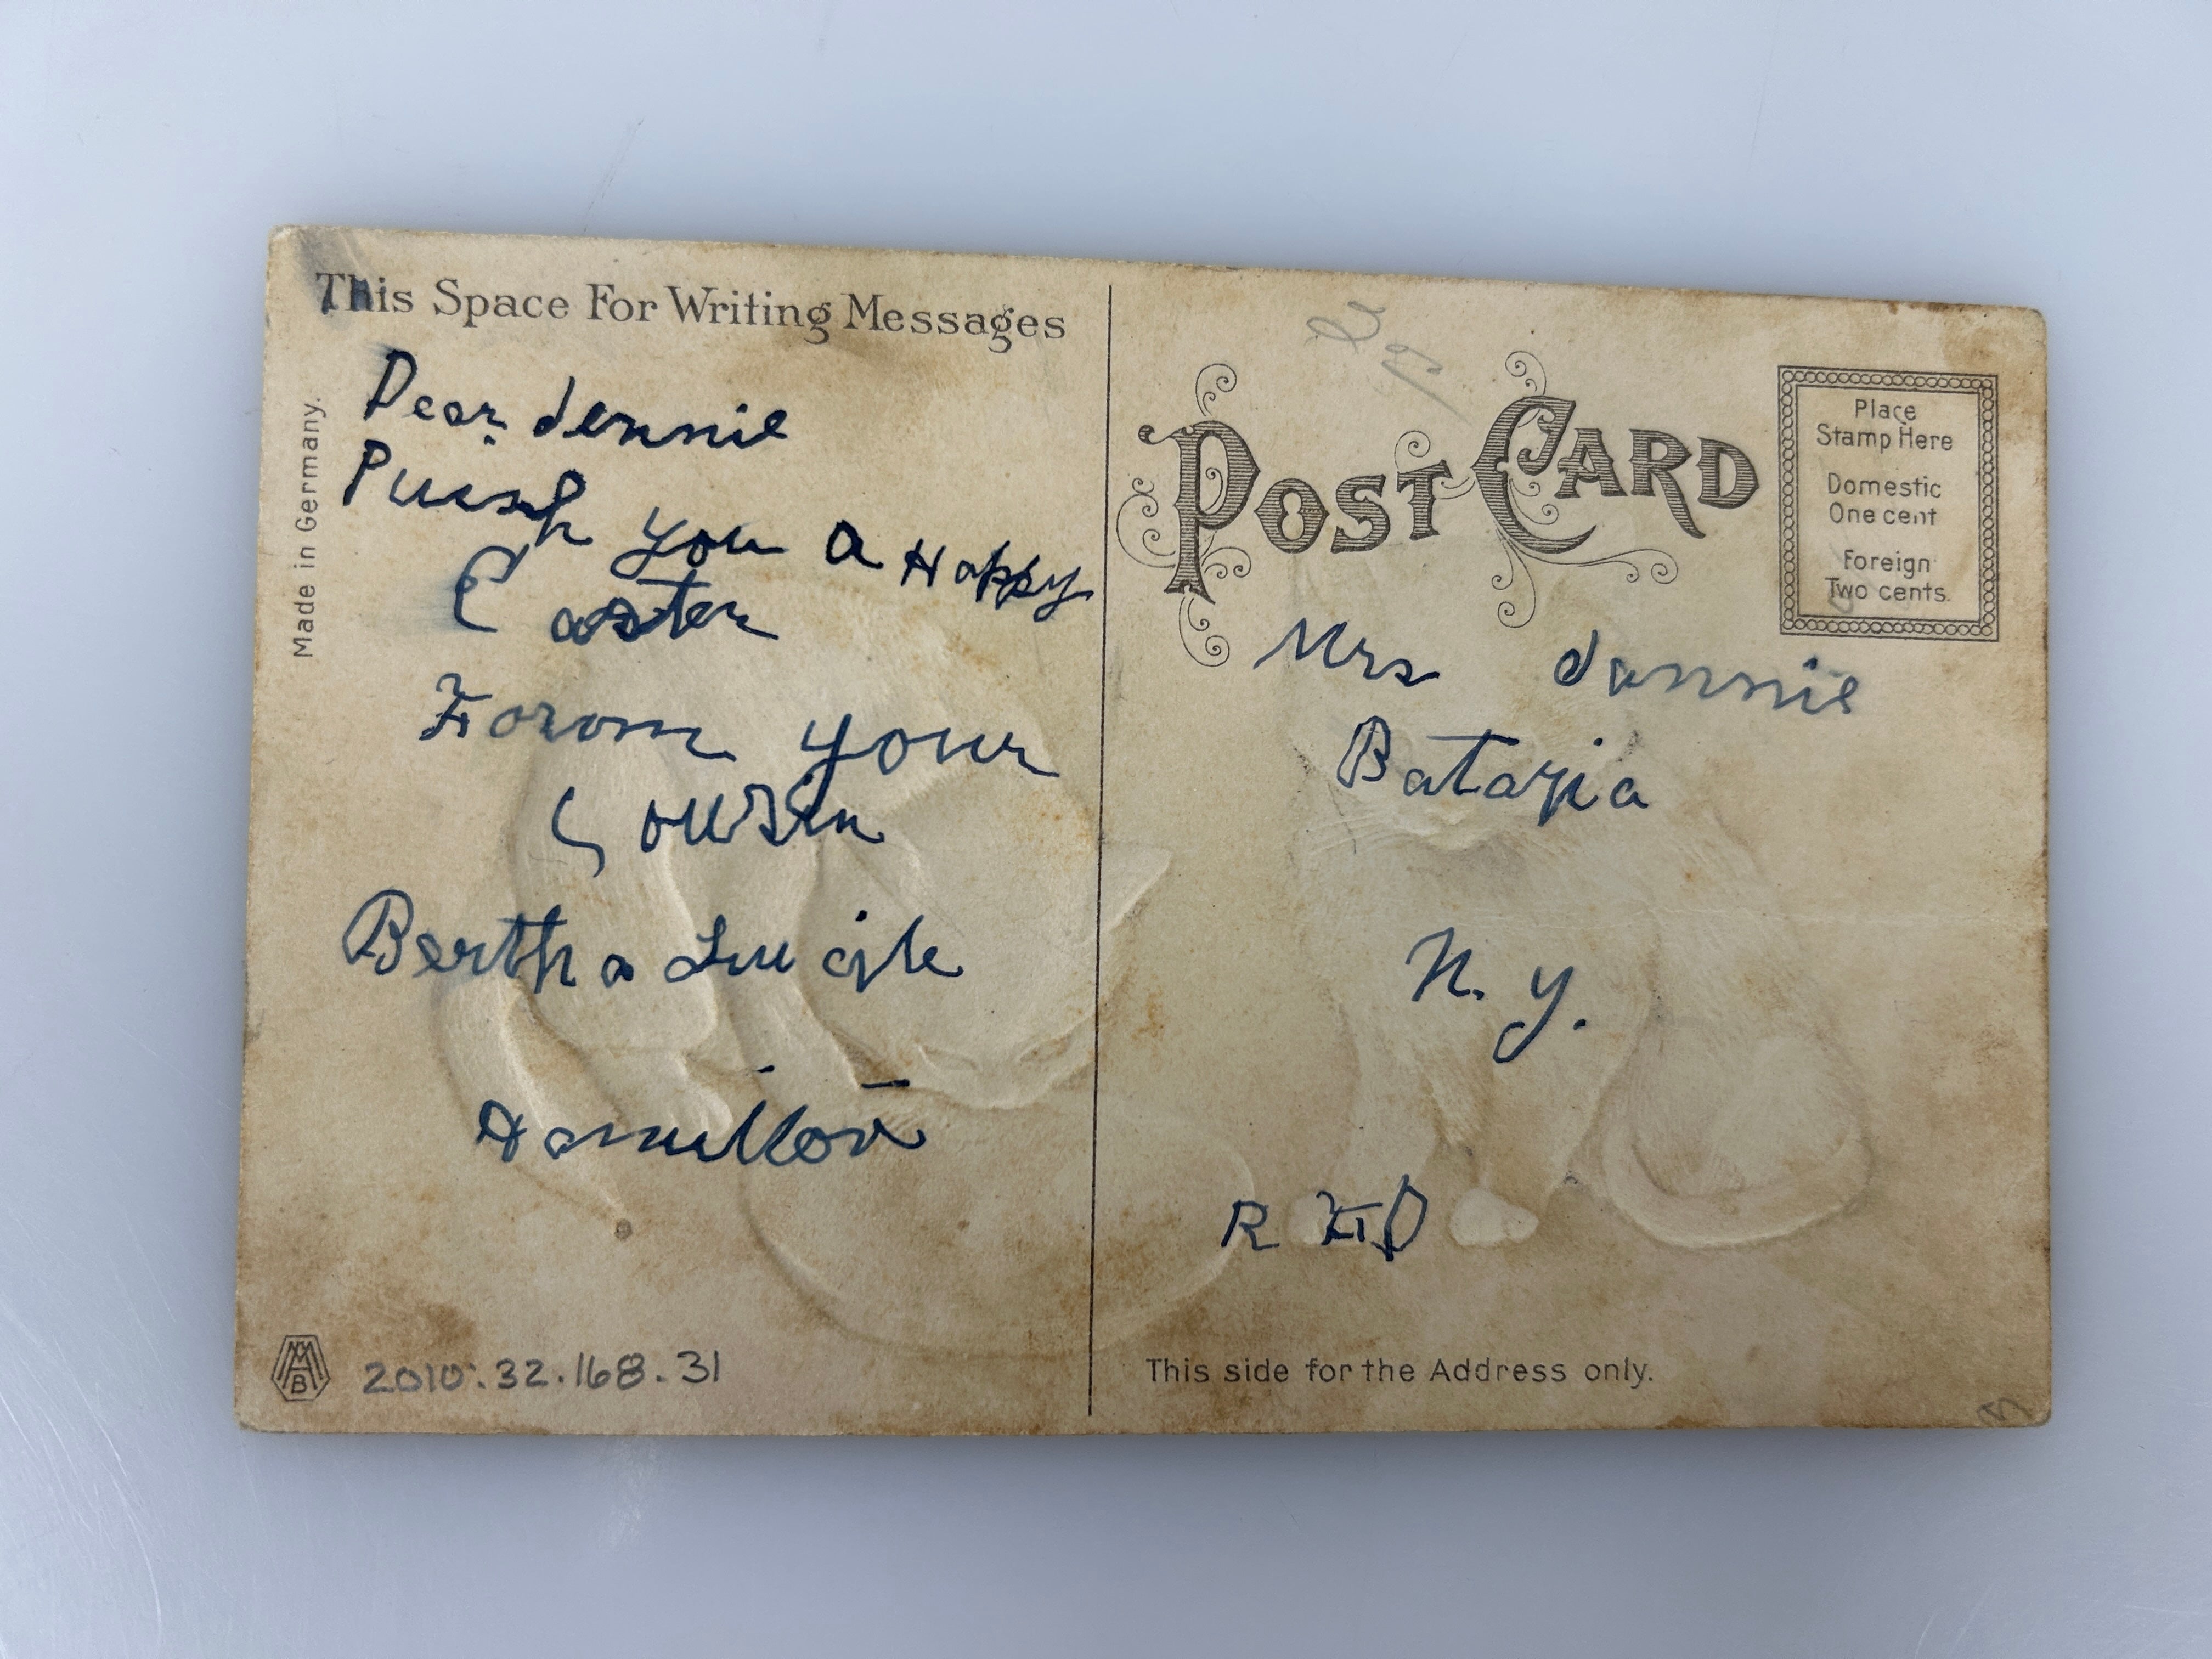 This Space For Writing Messages
Made in Germany.
Dear Jennie
you a Happy
Easter
Forom your
Cousin
Bertha Lucile
Hamilton
2010.32.168.31
POST CARD
Place
Stamp Here
Domestic
One cent
Foreign
Two cents.
Mrs Jennie
Batavia
N. Y.
R F D
This side for the Address only.